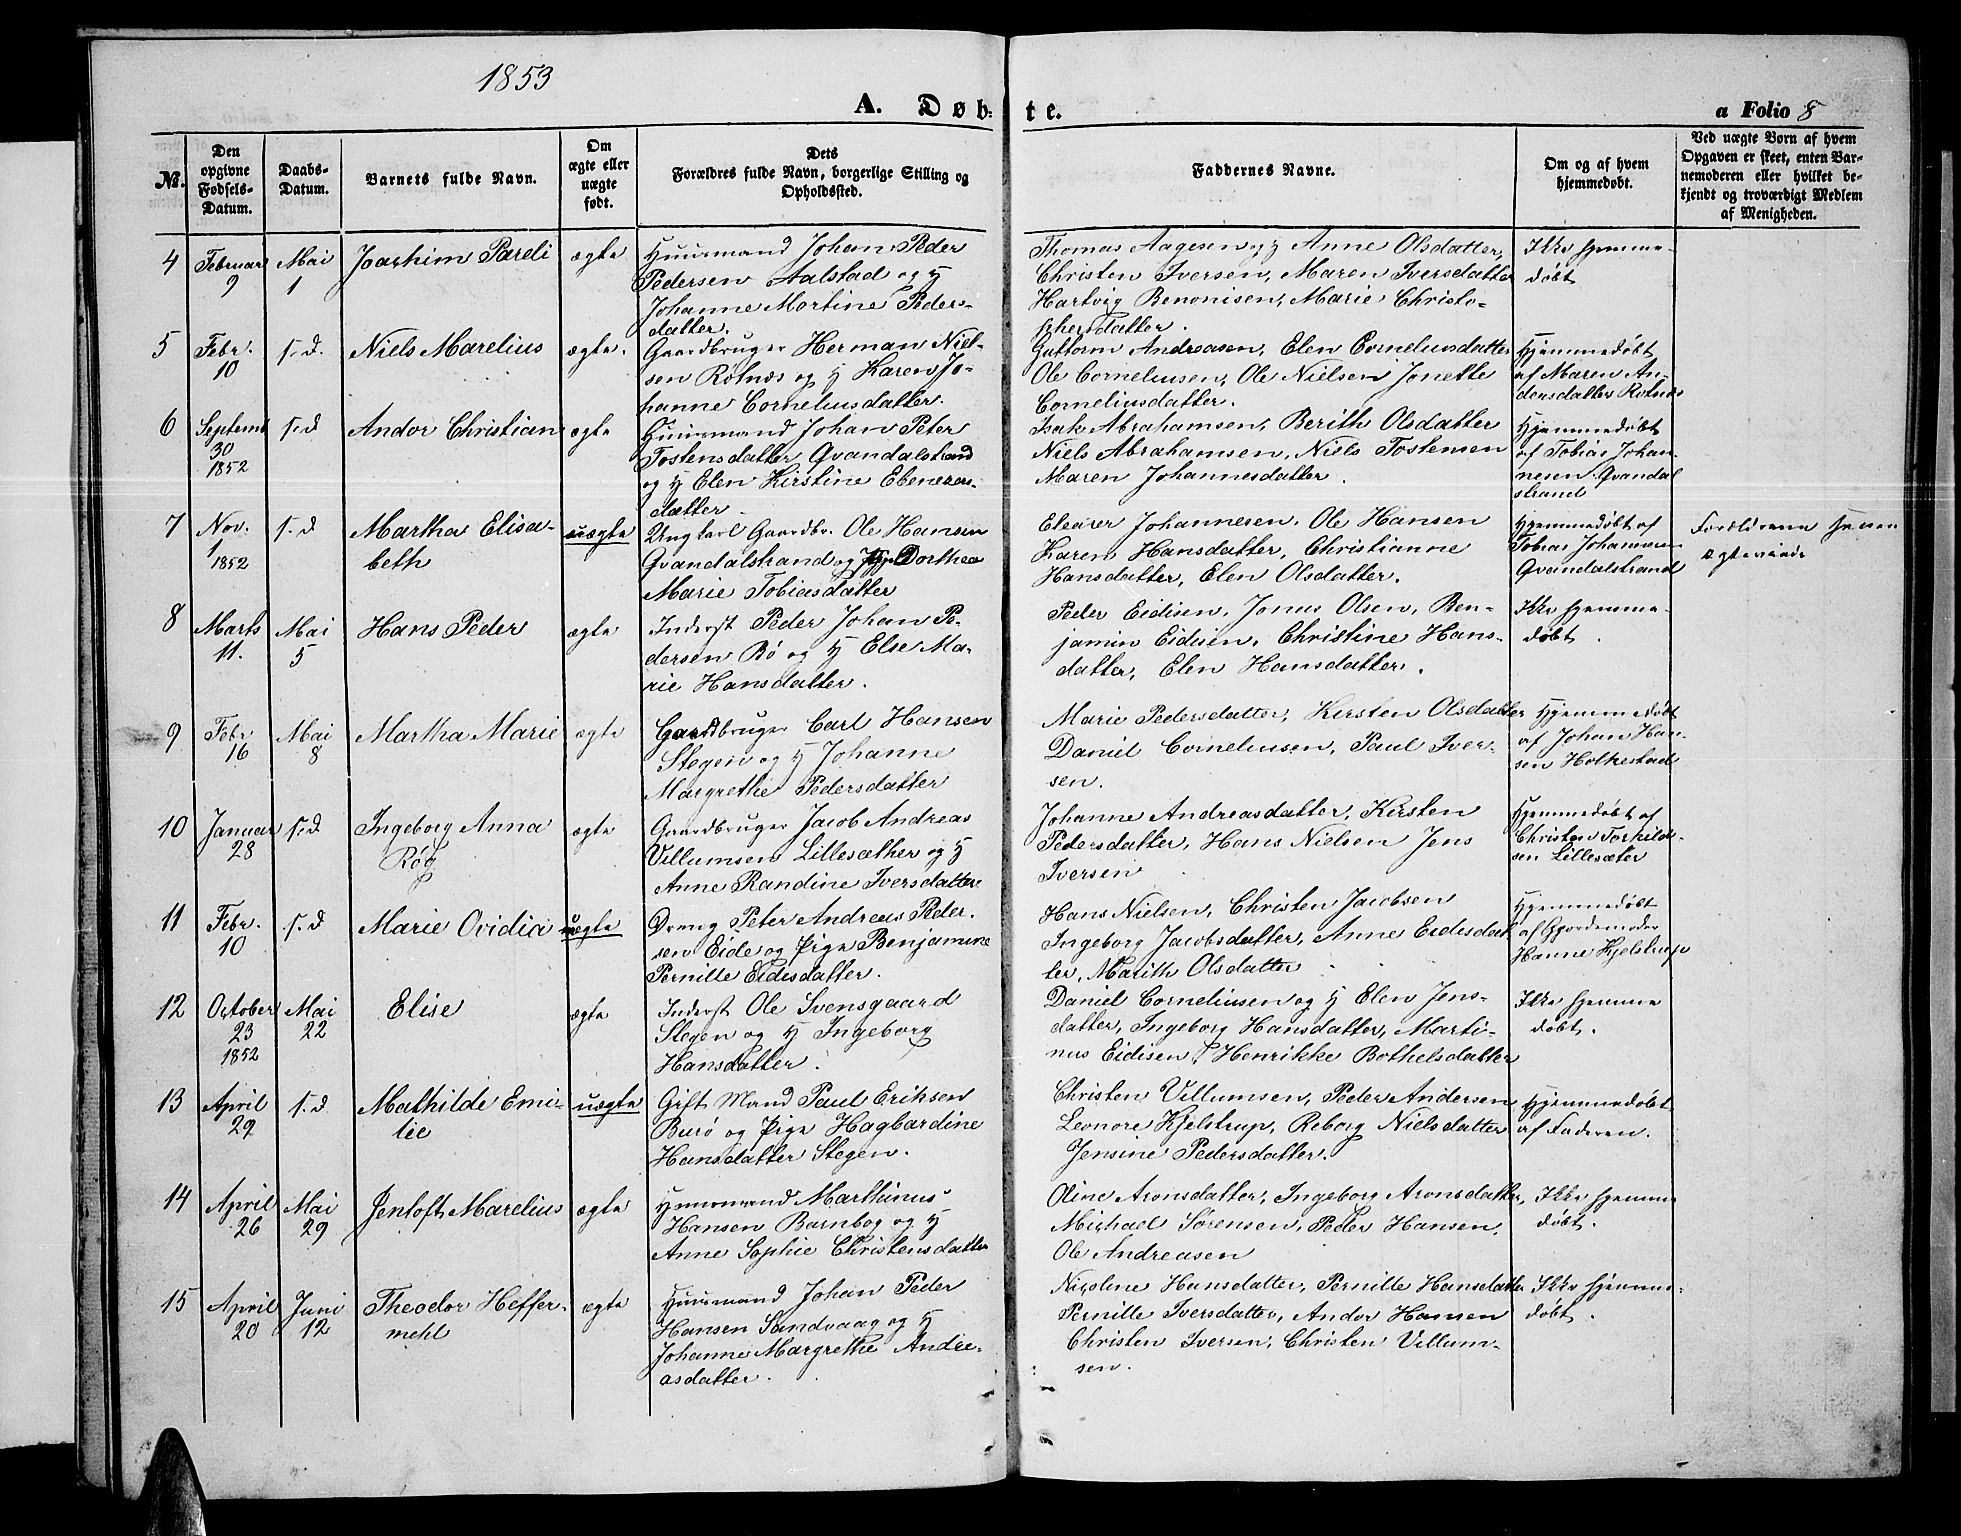 1853
A. Døb-
te.
a Folio 8
№.
Den
opgivne
Fødsels-
Datum.
Daabs-
Datum.
Barnets fulde Navn.
Om
ægte eller
uægte
født.
Dets
Forældres fulde Navn, borgerlige Stilling og
Opholdssted.
Faddernes Navne.
Om og af hvem
hjemmedøbt.
Ved uægte Børn af hvem
Opgaven er skeet, enten Bar-
nemoderen eller hvilket be-
kjendt og troværdigt Medlem
af Menigheden.
4
Februar
9
Mai
1
Joachim Pareli
ægte
Huusmand Johan Peder
Pedersen Aalstad og H
Johanne Martine Peders-
datter.
Thomas Aagesen og H Anne Olsdatter,
Christen Iversen, Maren Iversdatter
Hartvig Benonisen, Marie Christo-
phersdatter.
Ikke hjemme-
døbt
5
Febr.
10
s. d.
Niels Marelius
ægte.
Gaardbruger Herman Niel-
sen Rotnæs og H Karen Jo-
hanne Corneliusdatter.
Guttorm Andreasen, Elen Corneliusdatter
Ole Corneliusen, Ole Nielsen Jonette
Corneliusdatter.
Hjemmedøbt
af Maren An-
dersdatter Rotnæs
6
Septemb
30
1852
s. d
Andor Christian
ægte
Huusmand Johan Peter
Tostensdatter Qvandalstrand
og H Elen Kirstine Ebenezers-
datter.
Isak Abrahamsen, Berith Olsdatter
Niels Abrahamsen, Niels Tostensen
Maren Johannesdatter.
Hjemmedøbt
af Tobias Johan-
nesen Qvandal
strand
7
Nov.
1
1852
s. d
Martha Elisa-
beth
uægte
Ungkarl Gaardbr. Ole Hansen
Qvandalstrand og Pige Dorthea
Marie Tobiasdatter
Eleazer Johannesen. Ole Hansen
Karen Hansdatter, Christianne
Hansdatter, Elen Olsdatter.
Hjemmedøbt af
Tobias Johannesen
Qvandalstrand
Forældrene
ægteviede
8
Marts
11.
Mai
5
Hans Peder
ægte
Inderst Peder Johan Pe-
dersen Bö og H Else Ma-
rie Hansdatter.
Peder Eidisen, Jonas Olsen, Ben-
jamin Eidisen, Christine Hans-
datter, Elen Hansdatter.
Ikke hjemme-
døbt.
9
Febr
16
Mai
8
Martha Marie
ægte
Gaardbruger Carl Hansen
Stegen og H Johanne
Margrethe Pedersdatter
Marie Pedersdatter, Kirsten Olsdatter
Daniel Corneliusen, Paul Iver-
sen.
Hjemmedøbt
af Johan Han-
sen Holkestad
10
Januar
28
s. d
Ingeborg Anna
Røg
ægte
Gaardbruger Jacob Andreas
Villumsen Lillesæther og H
Anne Randine Iversdatter
Johanne Andreasdatter, Kirsten
Pedersdatter, Hans Nielsen Jens
Iversen
Hjemmedøbt af
Christen Torkild-
sen Lillesæter
11
Febr.
10
s. d
Marie Ovidia
uægte
Dreng Peter Andreas Peder-
sen Eide og Pige Benjamine
Pernille Eidisdatter.
Hans Nielsen, Christen Jacobsen
Ingeborg Jacobsdatter, Anne Eidisdat
ter, Marith Olsdatter
Hjemmedøbt
af Gjordemoder
Hanne Kjelstrup
12
October
23
1852
Mai
22
Elise
ægte
Inderst Ole Svensgaard
Stegen og H Ingeborg
Hansdatter.
Daniel Corneliusen og H Elen Jens-
datter, Ingeborg Hansdatter, Marti-
nus Eidisen, Henrikke Bothelsdatter
Ikke hjemme
døbt.
13
April
29
s. d
Mathilde Emi-
lie
uægte
Gift Mand Paul Eriksen
Burö og Pige Hagbardine
Hansdatter Stegen.
Christen Villumsen, Peder Andersen
Leonore Kjelstrup, Reborg Nielsdatter
Jensine Pedersdatter.
Hjemmedøbt
af Faderen.
14
April
26
Mai
29
Jentoft Marelius
ægte
Huusmand Marthinus
Hansen Barnbog og H
Anne Sophie Christensdatter
Oline Aronsdatter, Ingeborg Aronsdatter,
Michael Sörensen, Peder Hansen,
Ole Andreasen
Ikke hjemme
døbt.
15
April
20
Juni
12
Theodor Heffer-
mehl
ægte
Huusmand Johan Peder
Hansen Sandvaag og H
Johanne Margrethe Andre-
asdatter.
Nicoline Hansdatter, Pernille Hansdatter
Pernille Iversdatter, Andor Hansen
Christen Iversen, Christen Villum-
sen.
Ikke hjemme-
døbt.